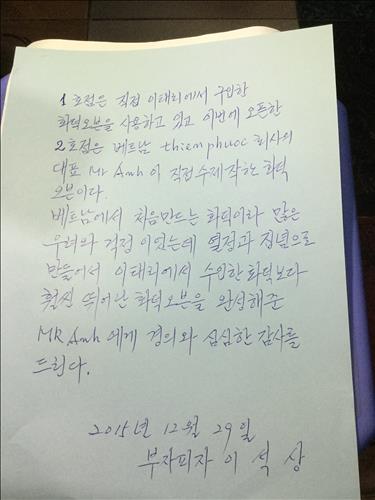 1호점은 직접 이태리에서 구입한
화덕오븐을 사용하고 있고 이번에 오픈한
2호점은 베트남 thiemphuoc 회사의
대표 Mr Anh 이 직접수제작하는 화덕
오븐이다.
베트남에서 처음만드는 화덕이라 많은
우려와 걱정이었는데 열정과 집념으로
만들어서 이태리에서 수입한 화덕보다
훨씬 뛰어난 화덕오븐을 완성해준
MR Anh 에게 경의와 심심한 감사를
드린다.
2015년 12월 29일
부자피자 이석상